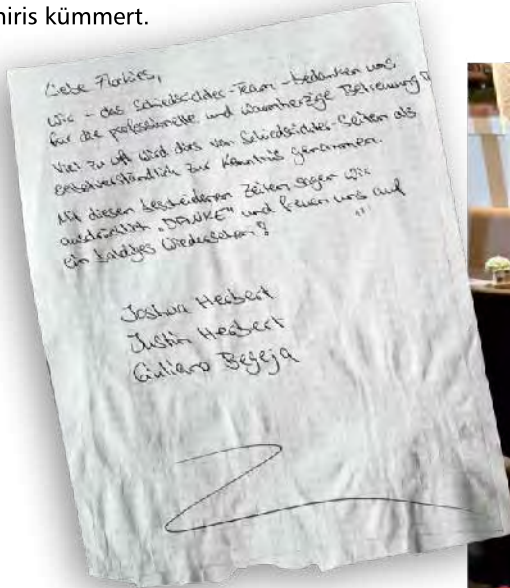 niris kümmert.
Liebe
Wir – das Schiedsrichter-Team – bedanken uns
für die professionelle und warmherzige Betreuung!
Viel zu oft wird dies von Schiedsrichter-Seiten als
selbstverständlich zur Kenntnis genommen.
Mit diesen bescheidenen Zeilen sagen wir
ausdrücklich „DANKE“ und freuen uns auf
ein baldiges Wiedersehen!
Joshua Herbert
Justin Herbert
Giuliano Begeja